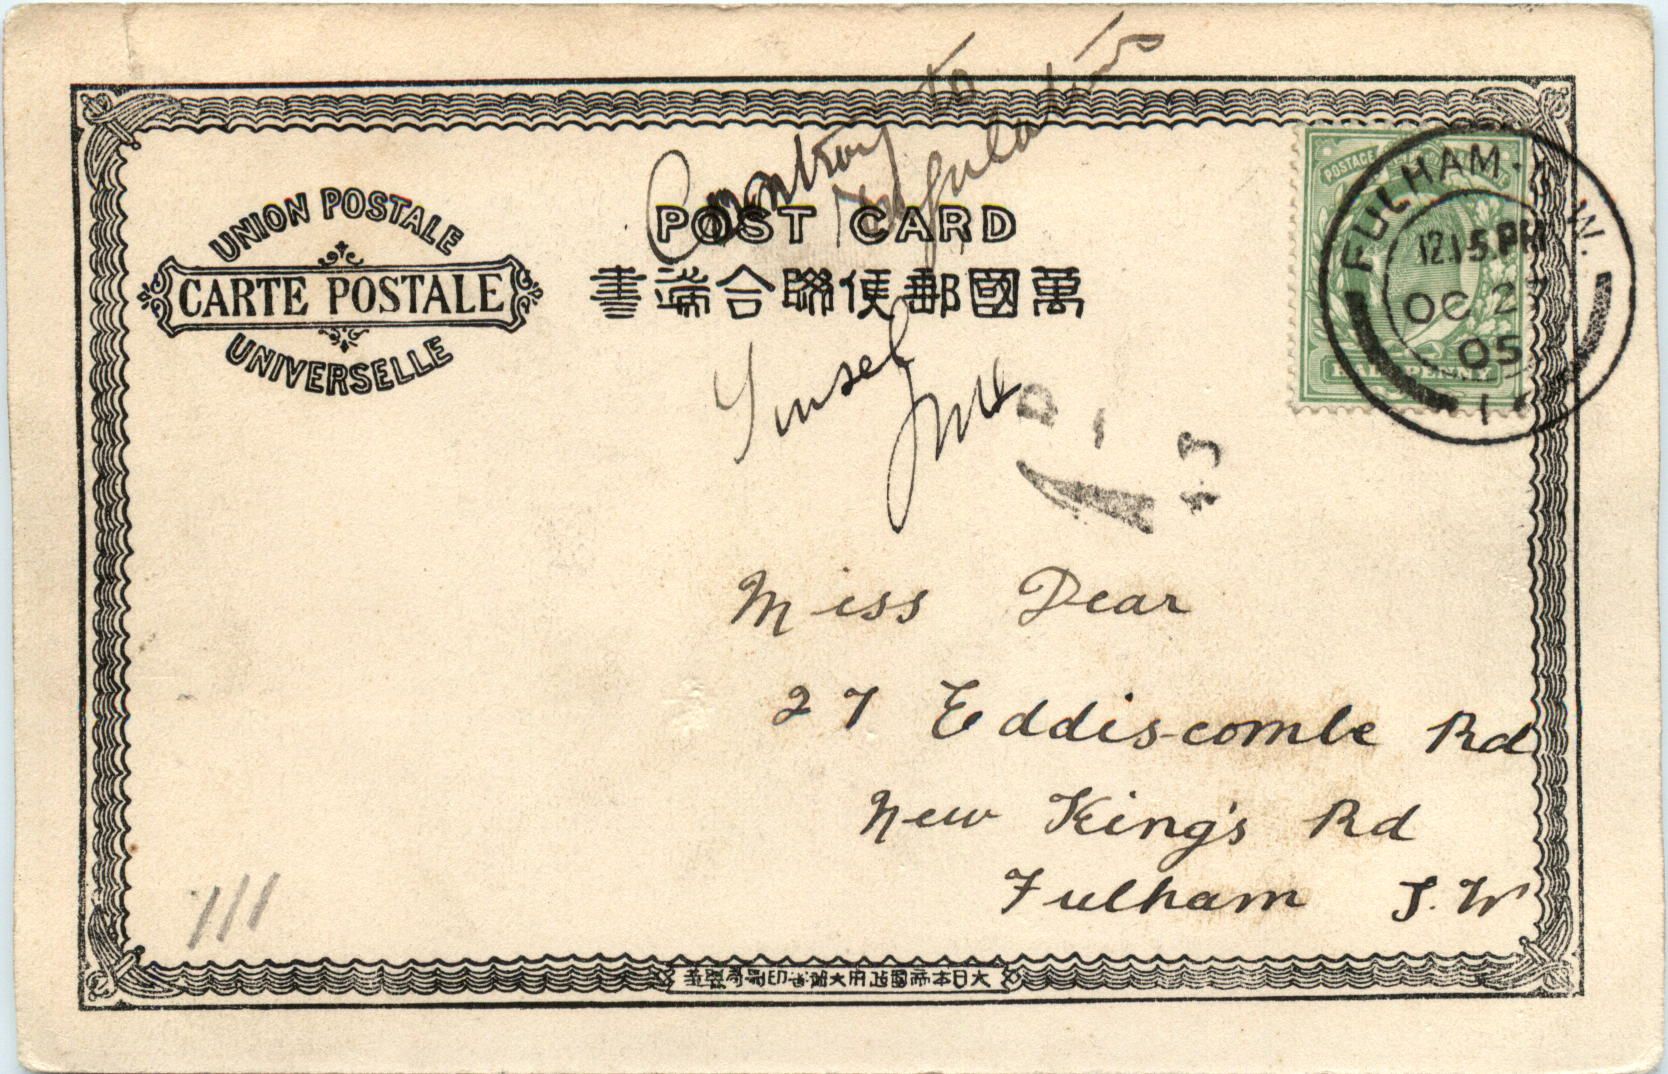 Contrary to
Regulations
UNION POSTALE
CARTE POSTALE
UNIVERSELLE
POST CARD
萬國郵便聯合端書
Tinsel
POSTAGE
HALFPENNY
FULHAM. S.W.
12.15.PM
OC 27
05
Miss Dear
27 Eddiscombe Rd
New King's Rd
Fulham S.W
111
大日本帝國政府大藏省印刷局製造